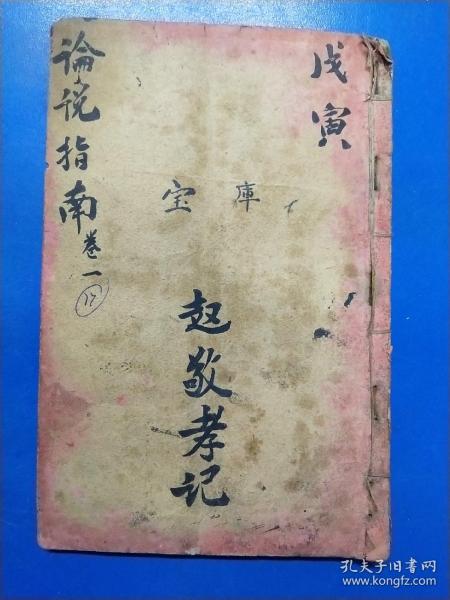 戊寅
庫宝
赵敬孝记
論说指南卷一
孔夫子旧书网
www.kongfz.com